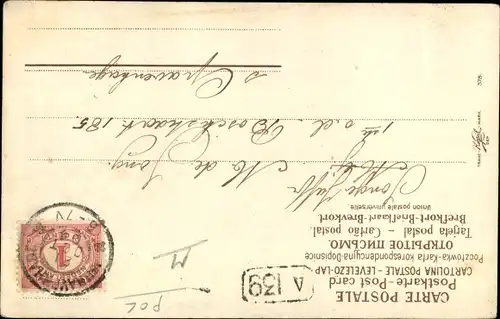 CARTE POSTALE
Postkarte-Post card
CARTOLINA POSTALE - LEVELEZO-LAP
Pocztówka-Karta korespondencyjna-Dopisnice
ОТКРЫТОЕ ПИСЬМО.
Tarjeta postal - Cartão postal.
Brefkort-Briefkaart-Brevkort
Union postale universelle
A 139
POL
M
de Jong.
1ste v. d. Boschstraat 185.
's Gravenhage
TRADE MARK
378.
1